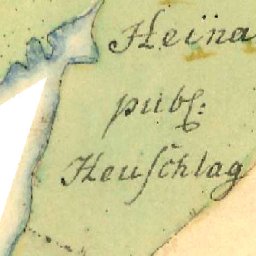 Heina
publ:
Heuſchlag